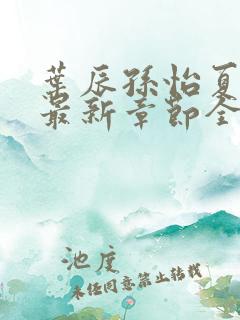 葉辰孫怡夏
最新章節全
池度
未经同意禁止转载